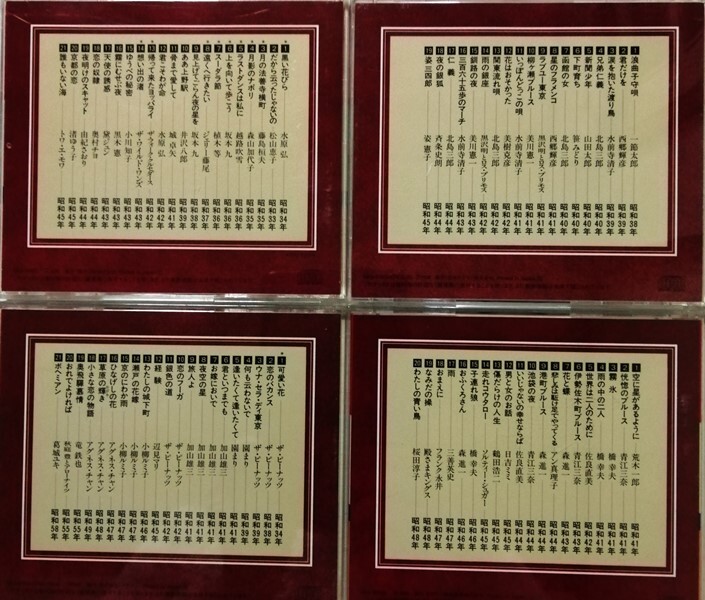 1 黒い花びら 水原 弘 昭和34年
2 だから云ったじゃないの 松山恵子 昭和33年
3 月の法善寺横町 藤島桓夫 昭和35年
4 月影のナポリ 森山加代子 昭和35年
5 ラストダンスは私に 越路吹雪 昭和36年
6 上を向いて歩こう 坂本 九 昭和36年
7 スーダラ節 植木 等 昭和36年
8 遠くへ行きたい ジェリー藤尾 昭和37年
9 見上げてごらん夜の星を 坂本 九 昭和38年
10 ああ上野駅 井沢八郎 昭和39年
11 骨まで愛して 城 卓矢 昭和41年
12 君こそわが命 水原 弘 昭和42年
13 帰って来たヨッパライ ザ・フォーク・クルセダーズ 昭和42年
14 想い出の渚 ザ・ワイルド・ワンズ
15 ゆうべの秘密 小川知子 昭和43年
16 霧にむせぶ夜 黒木 憲 昭和43年
17 天使の誘惑 黛ジュン 昭和43年
18 恋の奴隷 奥村チヨ 昭和44年
19 夜明けのスキャット 由紀さおり 昭和44年
20 京都の恋 渚ゆう子 昭和45年
21 誰もいない海 トワ・エ・モワ 昭和45年
1 浪曲子守唄 一節太郎 昭和38年
2 君だけを 西郷輝彦 昭和39年
3 涙を抱いた渡り鳥 水前寺清子 昭和39年
4 兄弟仁義 北島三郎 昭和40年
5 新聞少年 山田太郎 昭和40年
6 下町育ち 笹みどり 昭和40年
7 函館の女 北島三郎 昭和40年
8 星のフラメンコ 西郷輝彦 昭和41年
9 ラブユー東京 黒沢明とロス・プリモス 昭和41年
10 柳ケ瀬ブルース 美川憲一 昭和41年
11 いっぽんどっこの唄 水前寺清子 昭和41年
12 花はおそかった 美樹克彦 昭和42年
13 関東流れ唄 北島三郎 昭和42年
14 雨の銀座 黒沢明とロス・プリモス
15 釧路の夜 美川憲一 昭和43年
16 三百六十五歩のマーチ 水前寺清子 昭和43年
17 仁義 北島三郎 昭和44年
18 夜の銀狐 斉条史朗 昭和44年
19 姿三四郎 姿 憲子 昭和45年
1 可愛い花 ザ・ピーナッツ 昭和34年
2 恋のバカンス ザ・ピーナッツ 昭和38年
3 ウナ・セラ・ディ東京 ザ・ピーナッツ 昭和39年
4 何も云わないで 園まり 昭和39年
5 逢いたくて逢いたくて 園まり 昭和41年
6 君といつまでも 加山雄三 昭和41年
7 お嫁においで 加山雄三 昭和41年
8 夜空の星 加山雄三
9 旅人よ 加山雄三 昭和41年
10 恋のフーガ ザ・ピーナッツ 昭和42年
11 銀色の道 ザ・ピーナッツ 昭和41年
12 経験 辺見マリ 昭和45年
13 わたしの城下町 小柳ルミ子 昭和46年
14 瀬戸の花嫁 小柳ルミ子 昭和47年
15 京のにわか雨 小柳ルミ子 昭和47年
16 ひなげしの花 アグネス・チャン 昭和47年
17 草原の輝き アグネス・チャン 昭和48年
18 小さな恋の物語 アグネス・チャン 昭和49年
19 奥飛騨慕情 竜 鉄也 昭和55年
20 おれでよければ 昭和55年
21 ボヘミアン 葛城ユキ 昭和58年
1 空に星があるように 荒木一郎 昭和41年
2 恍惚のブルース 青江三奈 昭和41年
3 霧氷 橋 幸夫 昭和41年
4 雨の中の二人 橋 幸夫 昭和41年
5 世界は二人のために 佐良直美 昭和42年
6 伊勢佐木町ブルース 青江三奈 昭和43年
7 花と蝶 森 進一 昭和43年
8 悲しみは駆け足でやってくる アン真理子 昭和44年
9 港町ブルース 森 進一 昭和44年
10 池袋の夜 青江三奈 昭和44年
11 いいじゃないの幸せならば 佐良直美 昭和44年
12 男と女のお話 日吉ミミ 昭和45年
13 傷だらけの人生 鶴田浩二 昭和45年
14 走れコウタロー ソルティー・シュガー 昭和45年
15 子連れ狼 橋 幸夫
16 おふくろさん 森 進一 昭和46年
17 雨 三善英史 昭和47年
18 おまえに フランク永井 昭和47年
19 なみだの操 殿さまキングス 昭和48年
20 わたしの青い鳥 桜田淳子 昭和48年